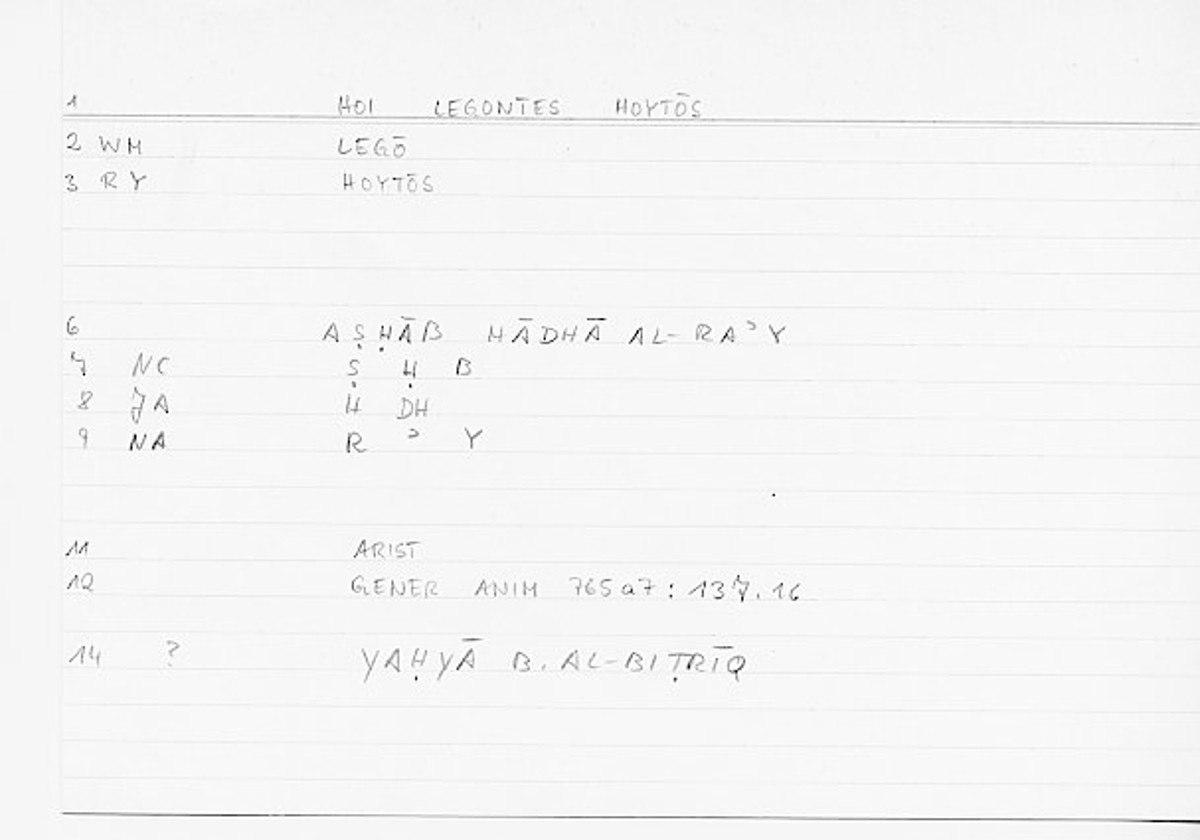 1 HOI LEGONTES HOYTŌS
2 WM LEGŌ
3 RY HOYTŌS
6 AṢḤĀB HĀDHĀ AL-RAʾY
7 NC Ṣ Ḥ B
8 JA H DH
9 NA R ʾ Y
11 ARIST
12 GENER ANIM 765a7: 137.16
14 ? YAḤYĀ B. AL-BIṬRĪQ